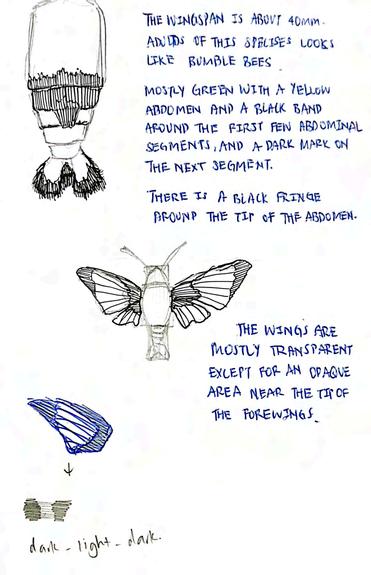 THE WINGSPAN IS ABOUT 40MM.
ADULDS OF THIS SPECISES LOOKS
LIKE BUMBLE BEES
MOSTLY GREEN WITH A YELLOW
ABDOMEN AND A BLACK BAND
AROUND THE FIRST FEW ABDOMINAL
SEGMENTS, AND A DARK MARK ON
THE NEXT SEGMENT.
THERE IS A BLACK FRINGE
AROUND THE TIP OF THE ABDOMEN.
THE WINGS ARE
MOSTLY TRANSPARENT
EXCEPT FOR AN OPAQUE
AREA NEAR THE TIP OF
THE FOREWINGS.
dark - light - dark.